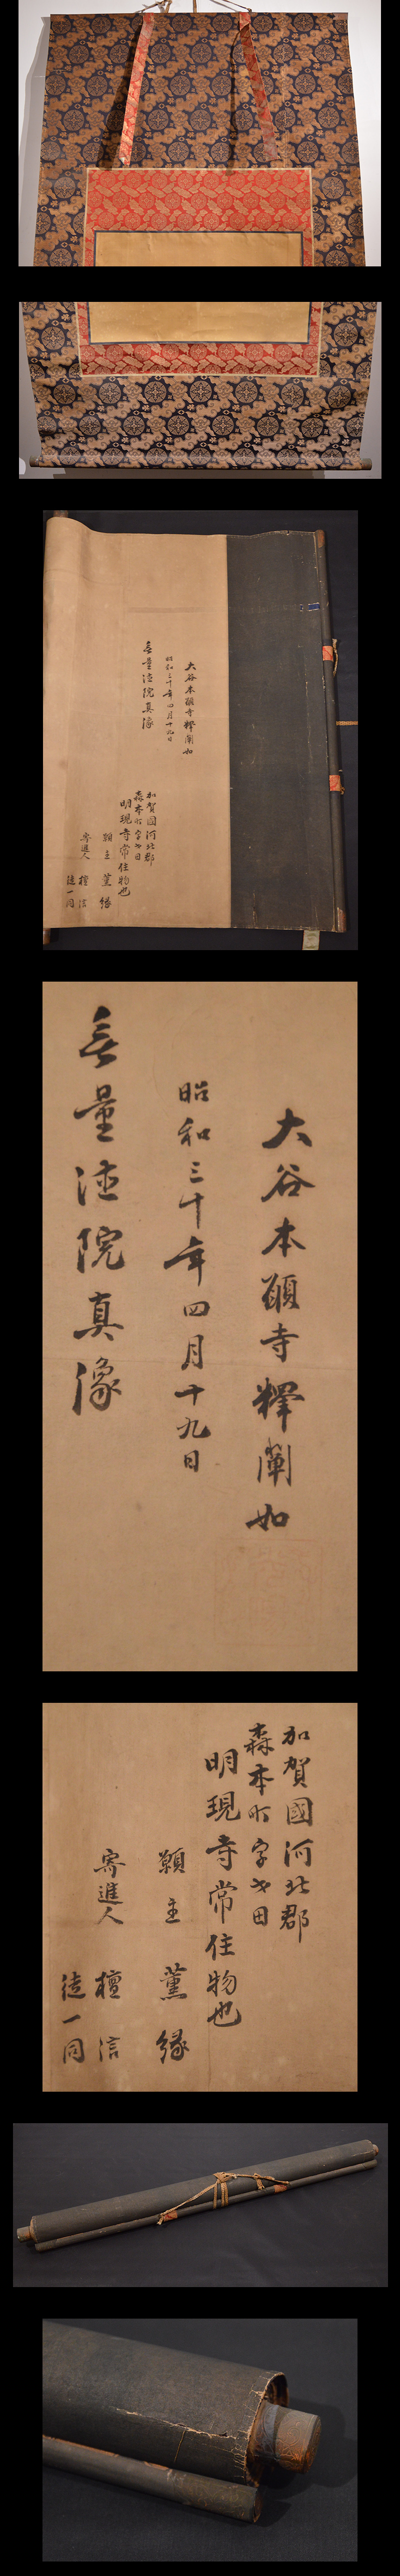 大谷本願寺釋闡如
昭和三十年四月十九日
無量徳院真像
加賀國河北郡
森本町字才田
明現寺常住物也
願主 薫縁
寄進人 檀信
徒一同
大谷本願寺釋闡如
昭和三十年四月十九日
無量徳院真像
加賀國河北郡
森本町字才田
明現寺常住物也
願主 薫縁
寄進人 檀信
徒一同